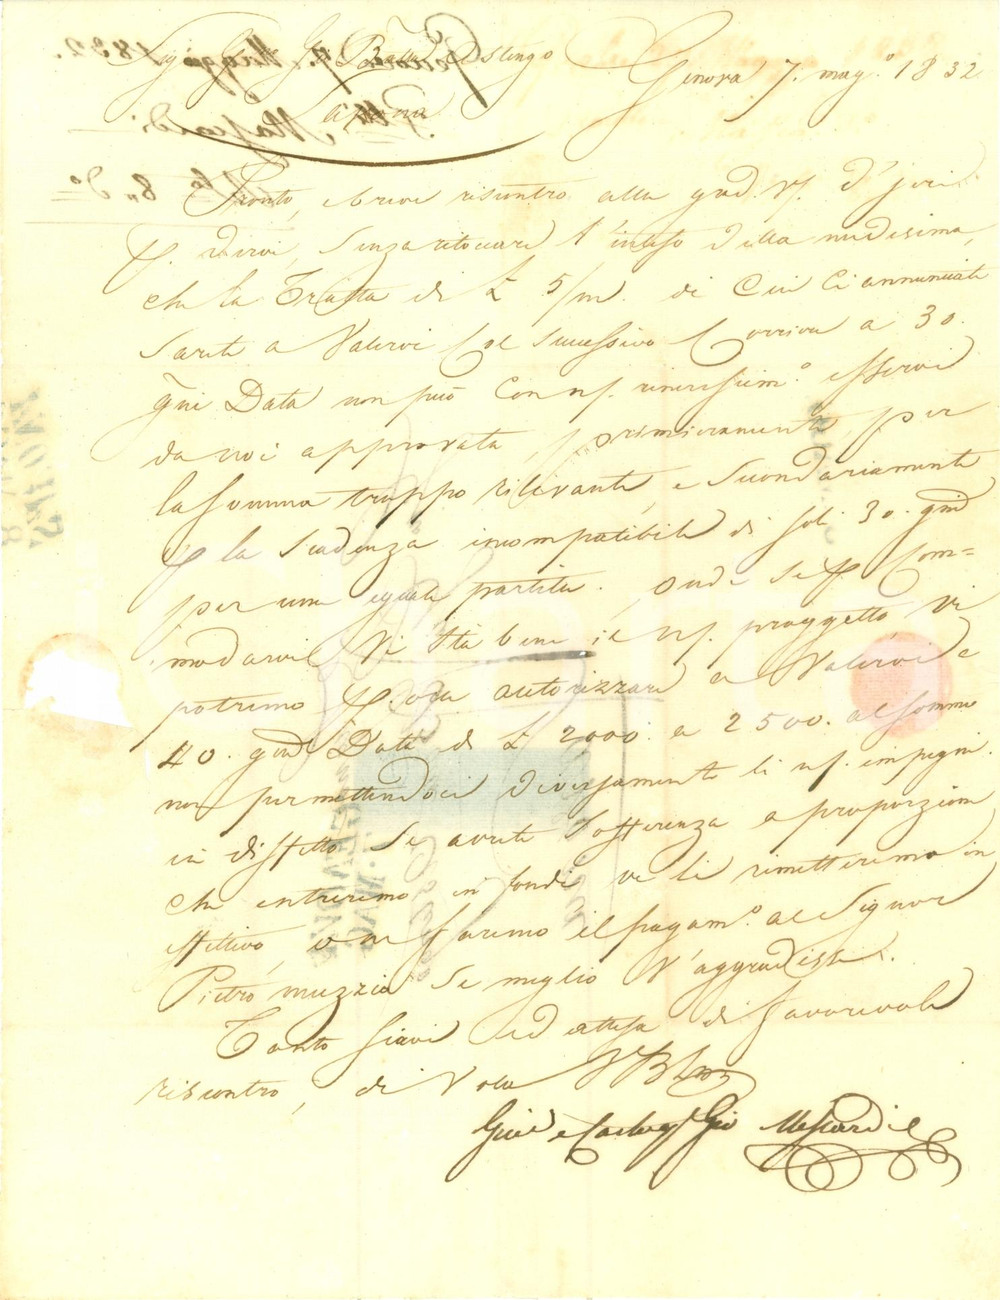 Genova 7. mag.º 1832
Pronto, e breve riscontro alla grad. vs. d'jeri
p. dirvi, senza ritoccare l'inteso della medesima,
che la Tratta di £ 5/m. di cui ci annunciate
sarete a Valervi col successivo Corriere a 30.
gni Data non può con ns. rincrescim.º esservi
da noi approvata, primieramente per
la somma troppo rilevante, e secondariamente
p la scadenza incompatibile di soli 30. gni
per una eguale partita. Onde se p Com=
modarvi Vi stà bene il ns. proggetto, vi
potremo p. ora autorizzare a Valervi a
40. gni Data di £ 2000. a 2500. al sommo
non permettendoci diversamente li ns. impegni.
in diffetto se avete sofferenza a proporzione
che entreremo in fondi ve li rimetteremo in
effettivo, o ne faremo il pagam.º al Signor
Pietro muzzio se meglio v'aggradisse.
Tanto siavi ed attesa di favorevole
riscontro, di Voi
Gio Mascardi